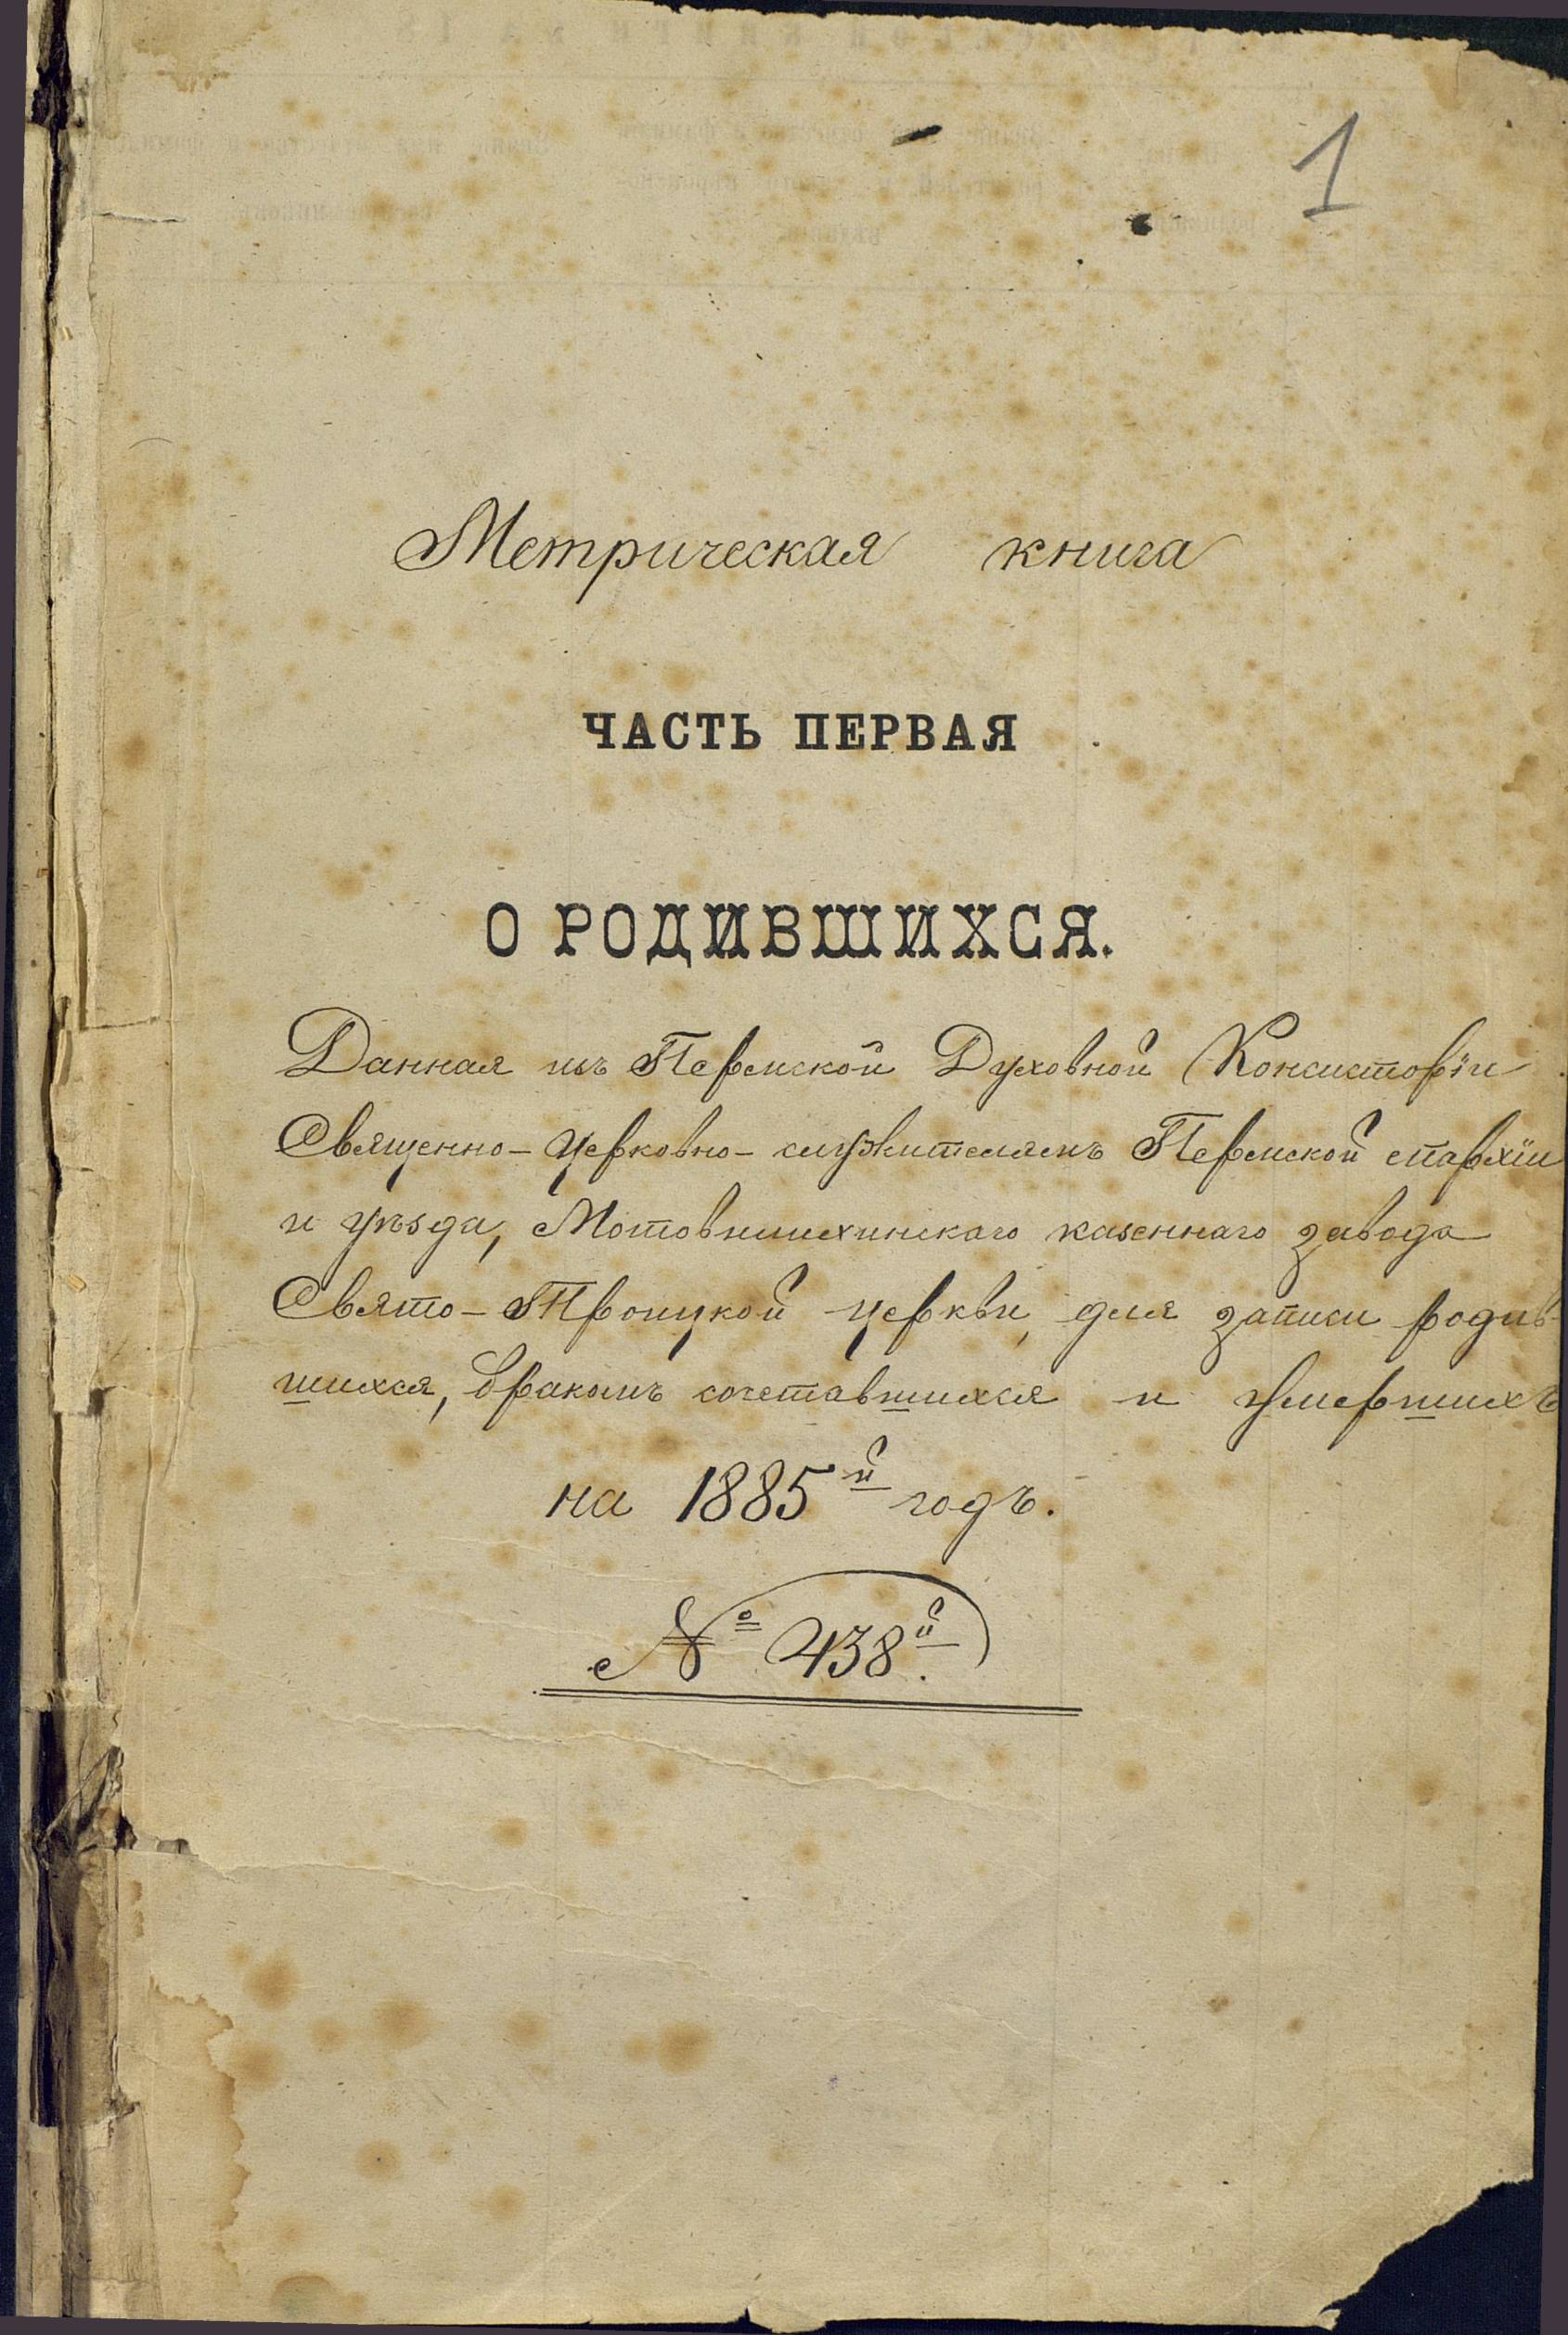 1
Метрическая книга
ЧАСТЬ ПЕРВАЯ
О РОДИВШИХСЯ.
Данная изъ Пермской Духовной Консисторіи
Священно-Церковно-служителямъ Пермской епархіи
и уѣзда, Мотовилихинскаго казеннаго завода
Свято-Троицкой церкви, для записи родив-
шихся, бракомъ сочетавшихся и умершихъ
на 1885й годъ.
№ 438й.